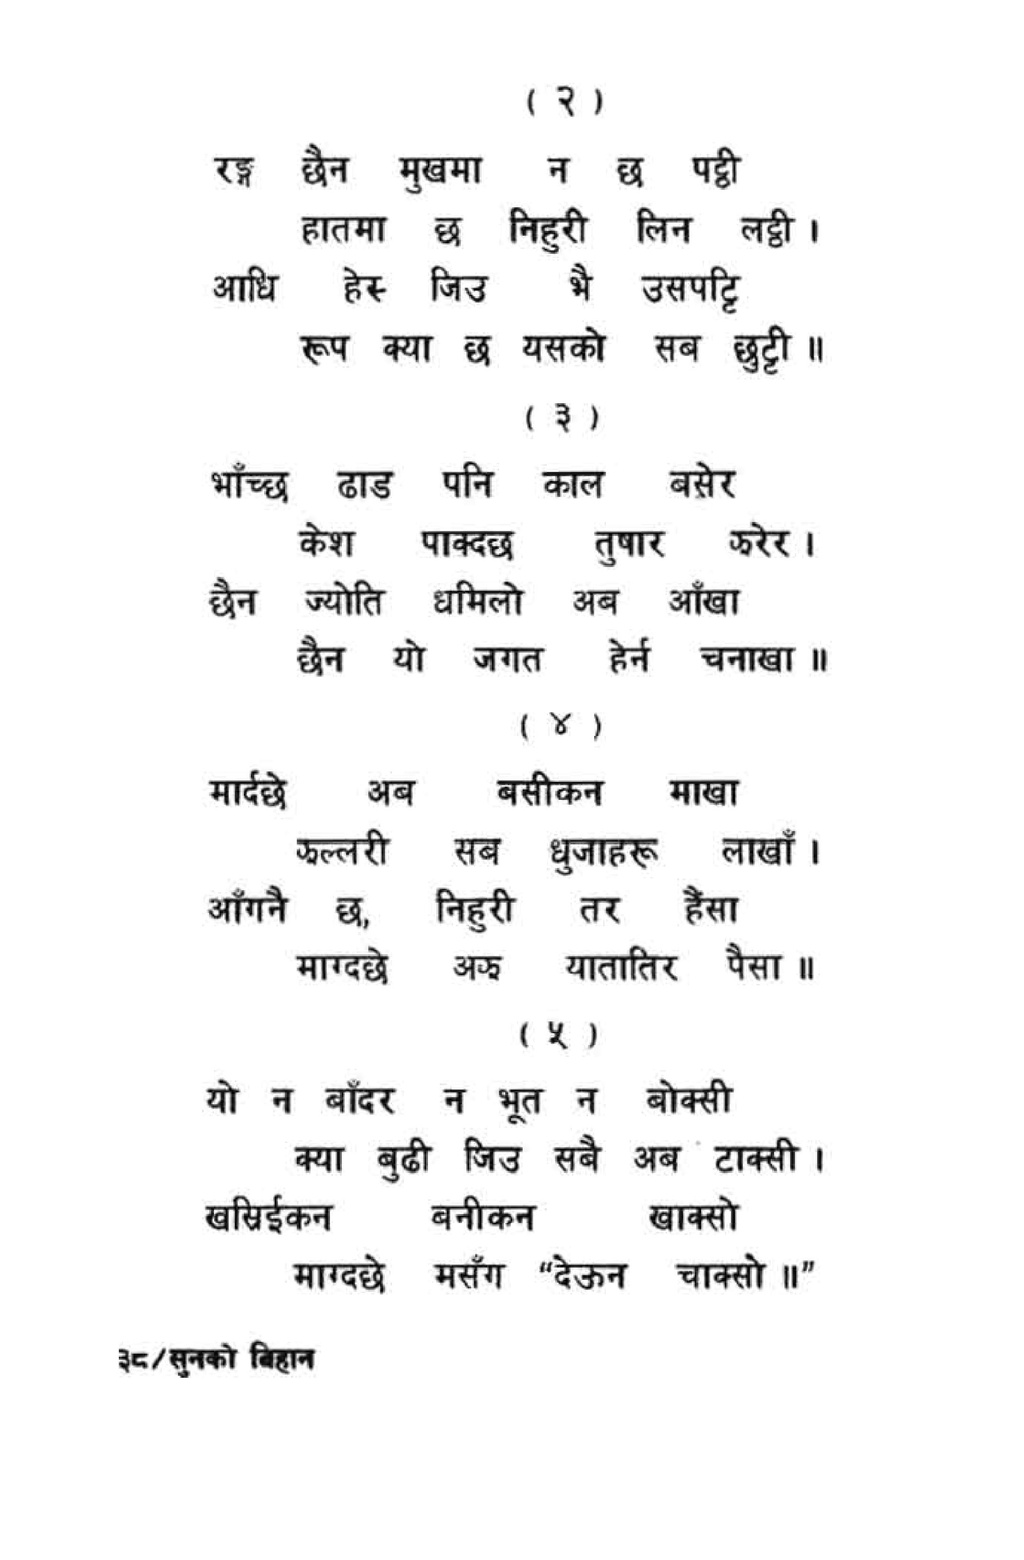 ( २ )
रङ्ग छैन मुखमा न छ पट्ठी
हातमा छ निहुरी लिन लट्ठी ।
आधि हेरू जिउ भै उसपट्टि
रूप क्या छ यसको सब छुट्टी ॥
( ३ )
भाँच्छ ढाड पनि काल बसेर
केश पाक्दछ तुषार झरेर ।
छैन ज्योति धमिलो अब आँखा
छैन यो जगत हेर्न चनाखा ॥
( ४ )
मार्दछे अब बसीकन माखा
झल्लरी सब धुजाहरू लाखाँ ।
आँगनै छ, निहुरी तर हैंसा
माग्दछे अझ यातातिर पैसा ॥
( ५ )
यो न बाँदर न भूत न बोक्सी
क्या बुढी जिउ सबै अब टाक्सी ।
खस्रिईकन बनीकन खाक्सो
माग्दछे मसँग “देऊन चाक्सो ॥”
३८/सुनको बिहान